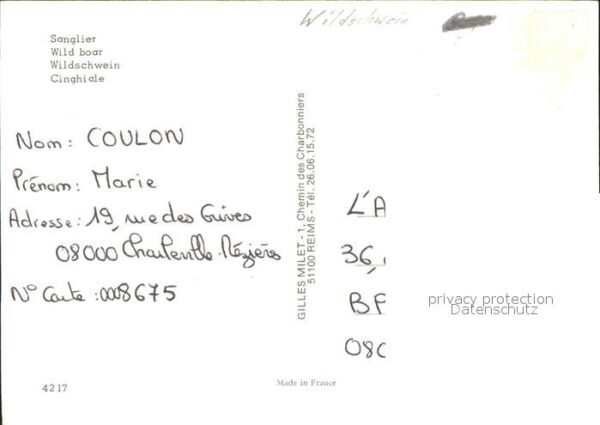 Wildschwein
Sanglier
Wild boar
Wildschwein
Cinghiale
Nom: COULON
Prénom: Marie
Adresse: 19, rue des Grives
08000 Charleville-Mézières
N° Carte: 0008675
GILLES MILET - 1, Chemin des Charbonniers
51100 REIMS - Tél. 26.06.15.72
L'A
36,
BF
08C
privacy protection
Datenschutz
4217
Made in France